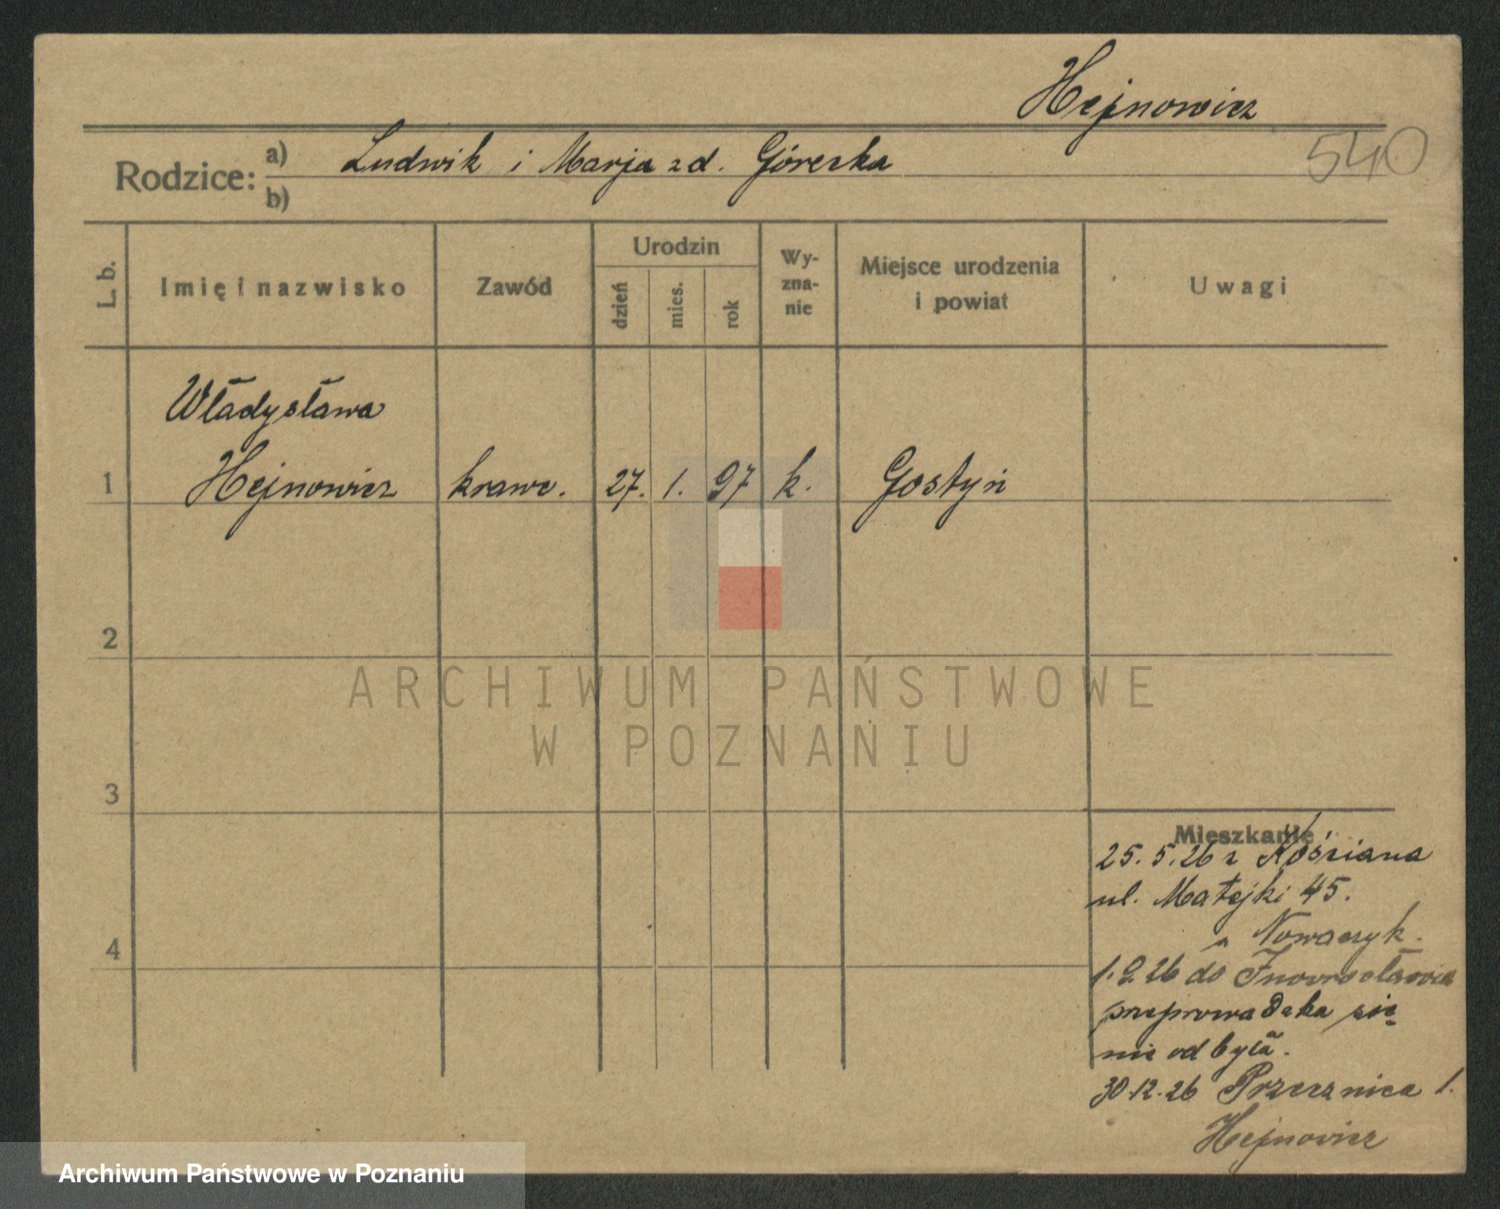 Hejnowicz
540
Rodzice: a) Ludwik i Marja z d. Górczka
b)
L. b.
Imię i nazwisko
Zawód
Urodzin
dzień
mies.
rok
Wy-
zna-
nie
Miejsce urodzenia
i powiat
Uwagi
Władysława
1 Hejnowicz krawc. 27. 1. 97 k. Gostyń
2
ARCHIWUM PAŃSTWOWE
W POZNANIU
3
Mieszkanie
25. 5. 26 z Kościana
ul. Matejki 45.
Nowaczyk.
4
1. 9. 26 do Inowrocławia
przeprowadzka się
nie odbyła.
30.12.26 Przecznica 1.
Hejnowicz
Archiwum Państwowe w Poznaniu